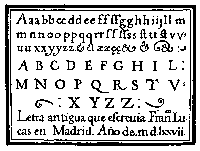 A a a b b c c d d e e f f g g h h i i j l l m
m n n o o p p q q r r s t t u v v
u u x x y y y z z
A B C D E F G H I L
M N O P Q R S T V
X Y Z Z
Letra antigua que escreuia Franco Lu
cas en Madrid. Año de. m d lxvii.